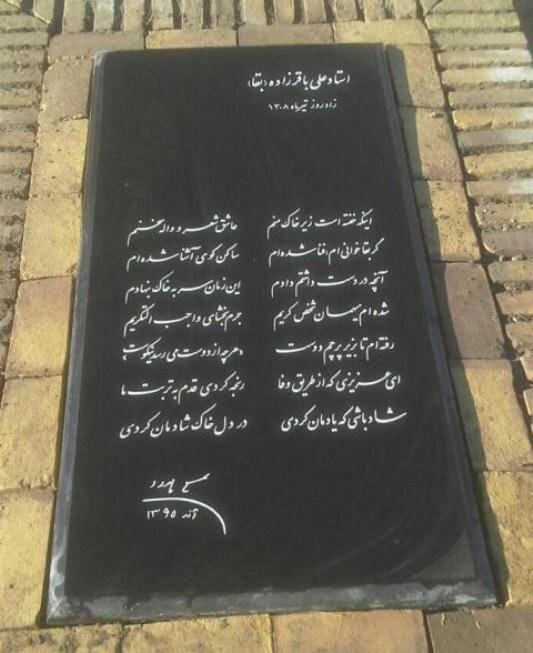 استاد علی باقرزاده (بقا)
زادروز تیرماه ۱۳۰۸
اینکه خفته است زیر خاک منم عاشق شعر و واله سخنم
گر بقا خوانی ام، فنا شده ام ساکن کوی آشنا شده ام
آنچه در دست داشتم دادم این زمان سر به خاک بنهادم
شده ام میهمان شخص کریم جرم بخشای واجب التکریم
رفته ام تا بزیر پرچم دوست هرچه از دوست می رسد نیکوست
ای عزیزی که از طریق وفا رنجه کردی قدم به تربت ما
شاد باشی که یادمان کردی در دل خاک شادمان کردی
۱۳۹۵